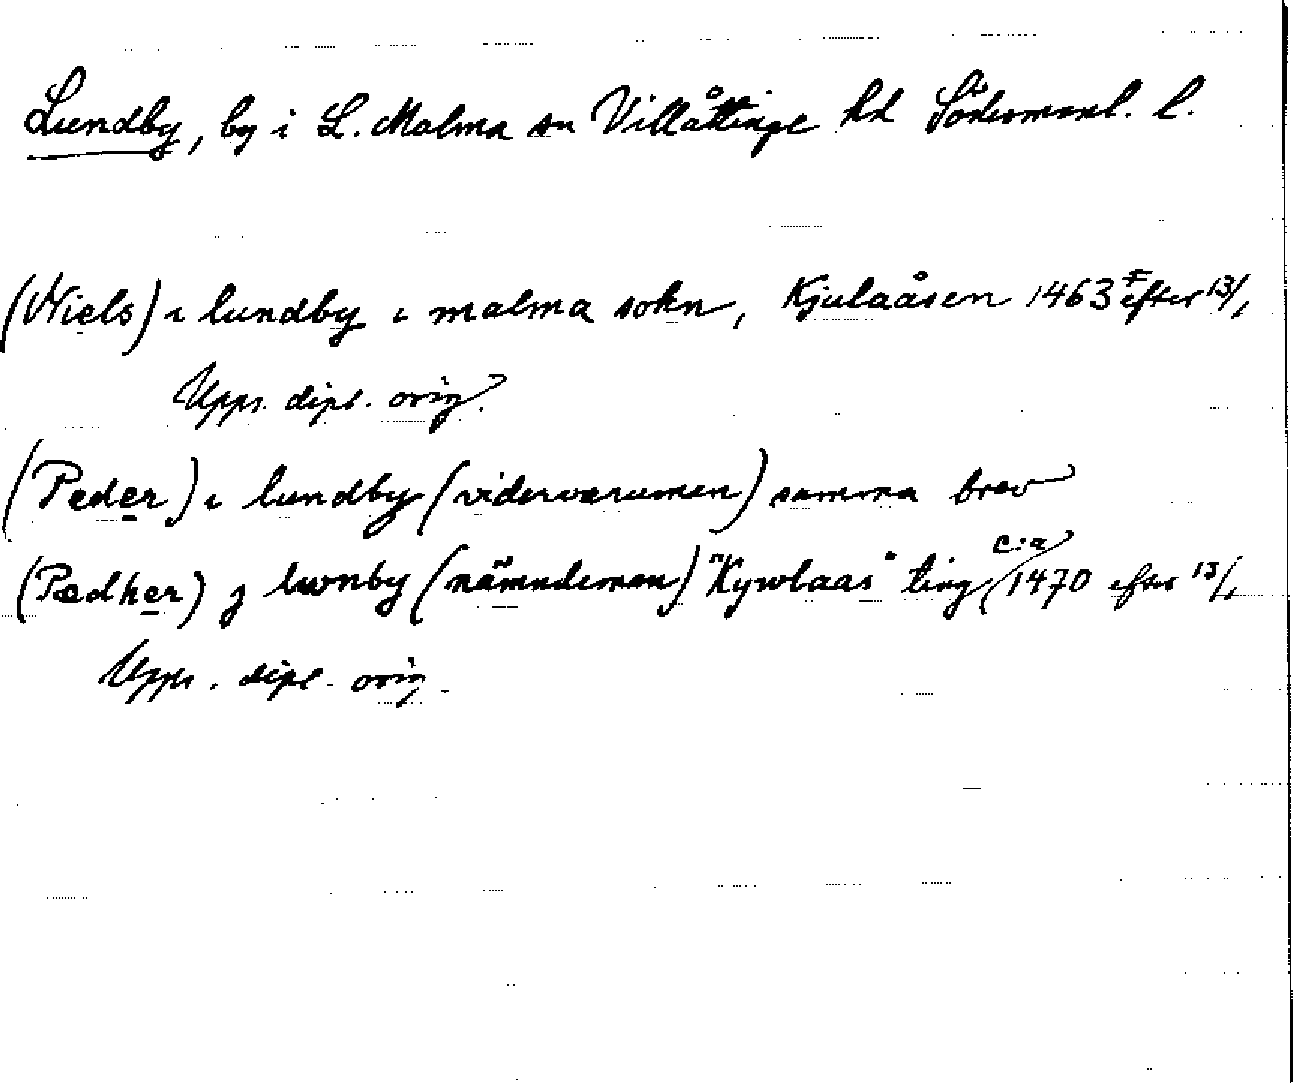 Lundby, by i L. Malma sn Villåttinge hd Södermanl. l.
(Niels) i lundby i malma sokn, Kjulaåsen 1463 efter 13/1
Upps. dipl. orig.
(Peder) i lundby (vidervarumen) samma brev
(Pædher) j lwnby (nämndeman) "Kywlaas" ting (c:a 1470 efter 13/1
Upps. dipl. orig.